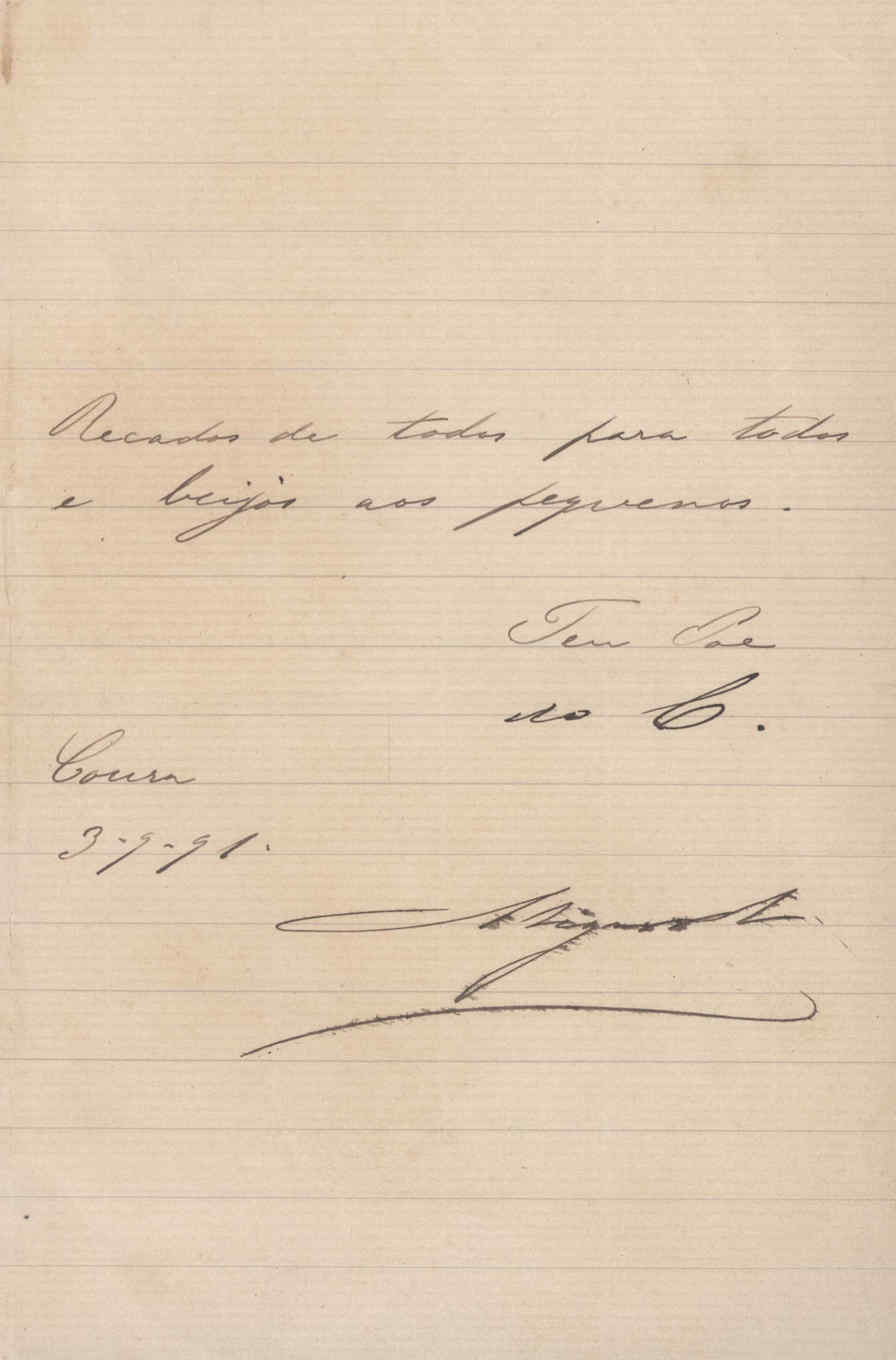 Recados de todos para todos
e beijos aos pequenos.
Teu Pae
do C.
Coura
3-9-91.
Miguel